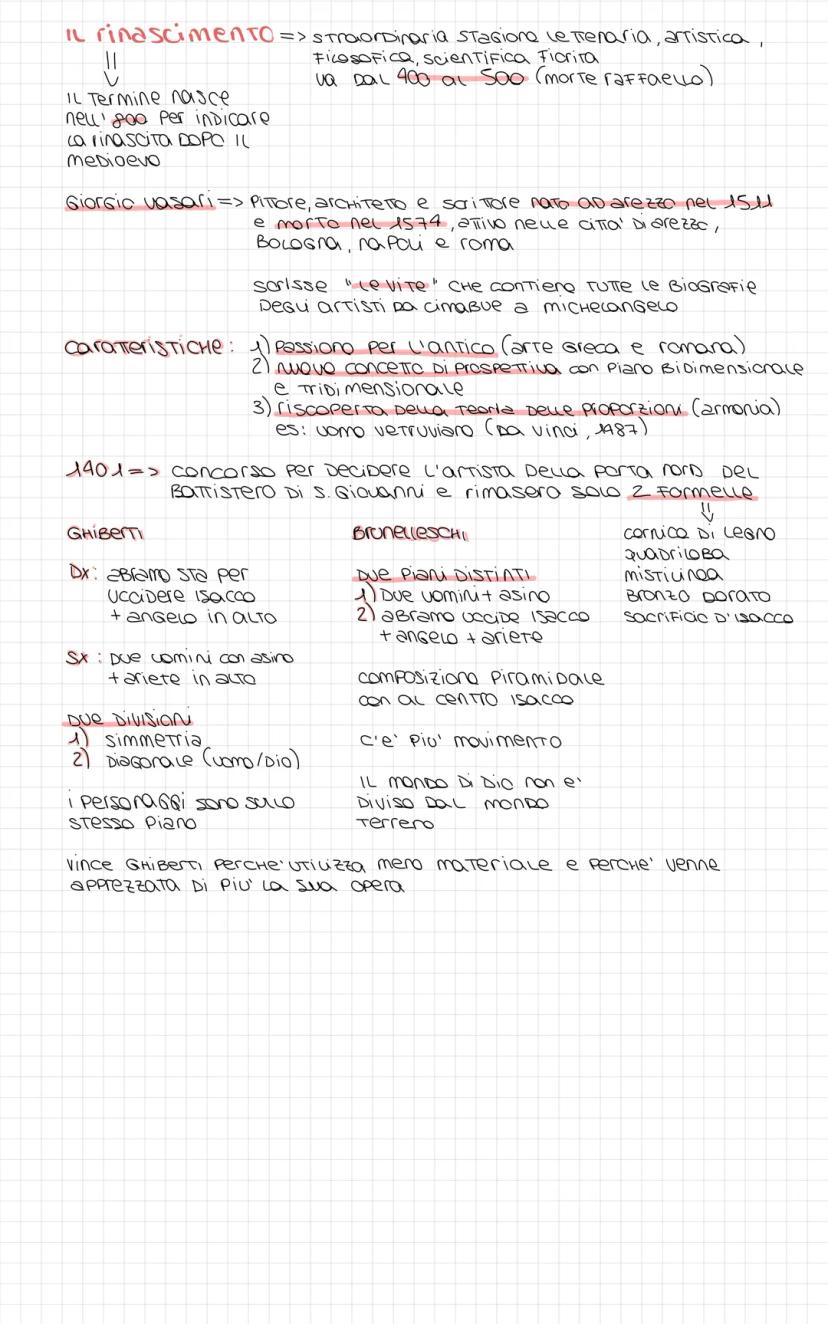 IL rinascimento => straordinaria stagione letteraria, artistica,
filosofica, scientifica fiorita
va dal 400 al 500 (morte raffaello)
IL termine nasce
nell' 800 per indicare
la rinascita dopo il
medioevo
Giorgio vasari => pittore, architetto e scrittore nato ad arezzo nel 1511
e morto nel 1574, attivo nelle citta' di arezzo,
Bologna, napoli e roma
scrisse "le vite" che contiene tutte le biografie
degli artisti da cimabue a michelangelo
caratteristiche: 1) passione per l'antico (arte greca e romana)
2) nuovo concetto di prospettiva con piano bidimensionale
e tridimensionale
3) riscoperta della teoria delle proporzioni (armonia)
es: uomo vetruviano (da vinci, 1487)
1401 => concorso per decidere l'artista della porta nord del
battistero di s. giovanni e rimasero solo 2 formelle
Ghiberti
Dx: abramo sta per
uccidere isacco
+ angelo in alto
Sx: due uomini con asino
+ ariete in alto
due divisioni
1) simmetria
2) diagonale (uomo/dio)
i personaggi sono sullo
stesso piano
Brunelleschi
due piani distinti
1) due uomini + asino
2) abramo uccide isacco
+ angelo + ariete
composizione piramidale
con al centro isacco
c'e' piu' movimento
il mondo di dio non e'
diviso dal mondo
terreno
cornice di legno
quadriloba
mistilinea
bronzo dorato
sacrificio d'isacco
vince ghiberti perche' utilizza meno materiale e perche' venne
apprezzata di piu' la sua opera